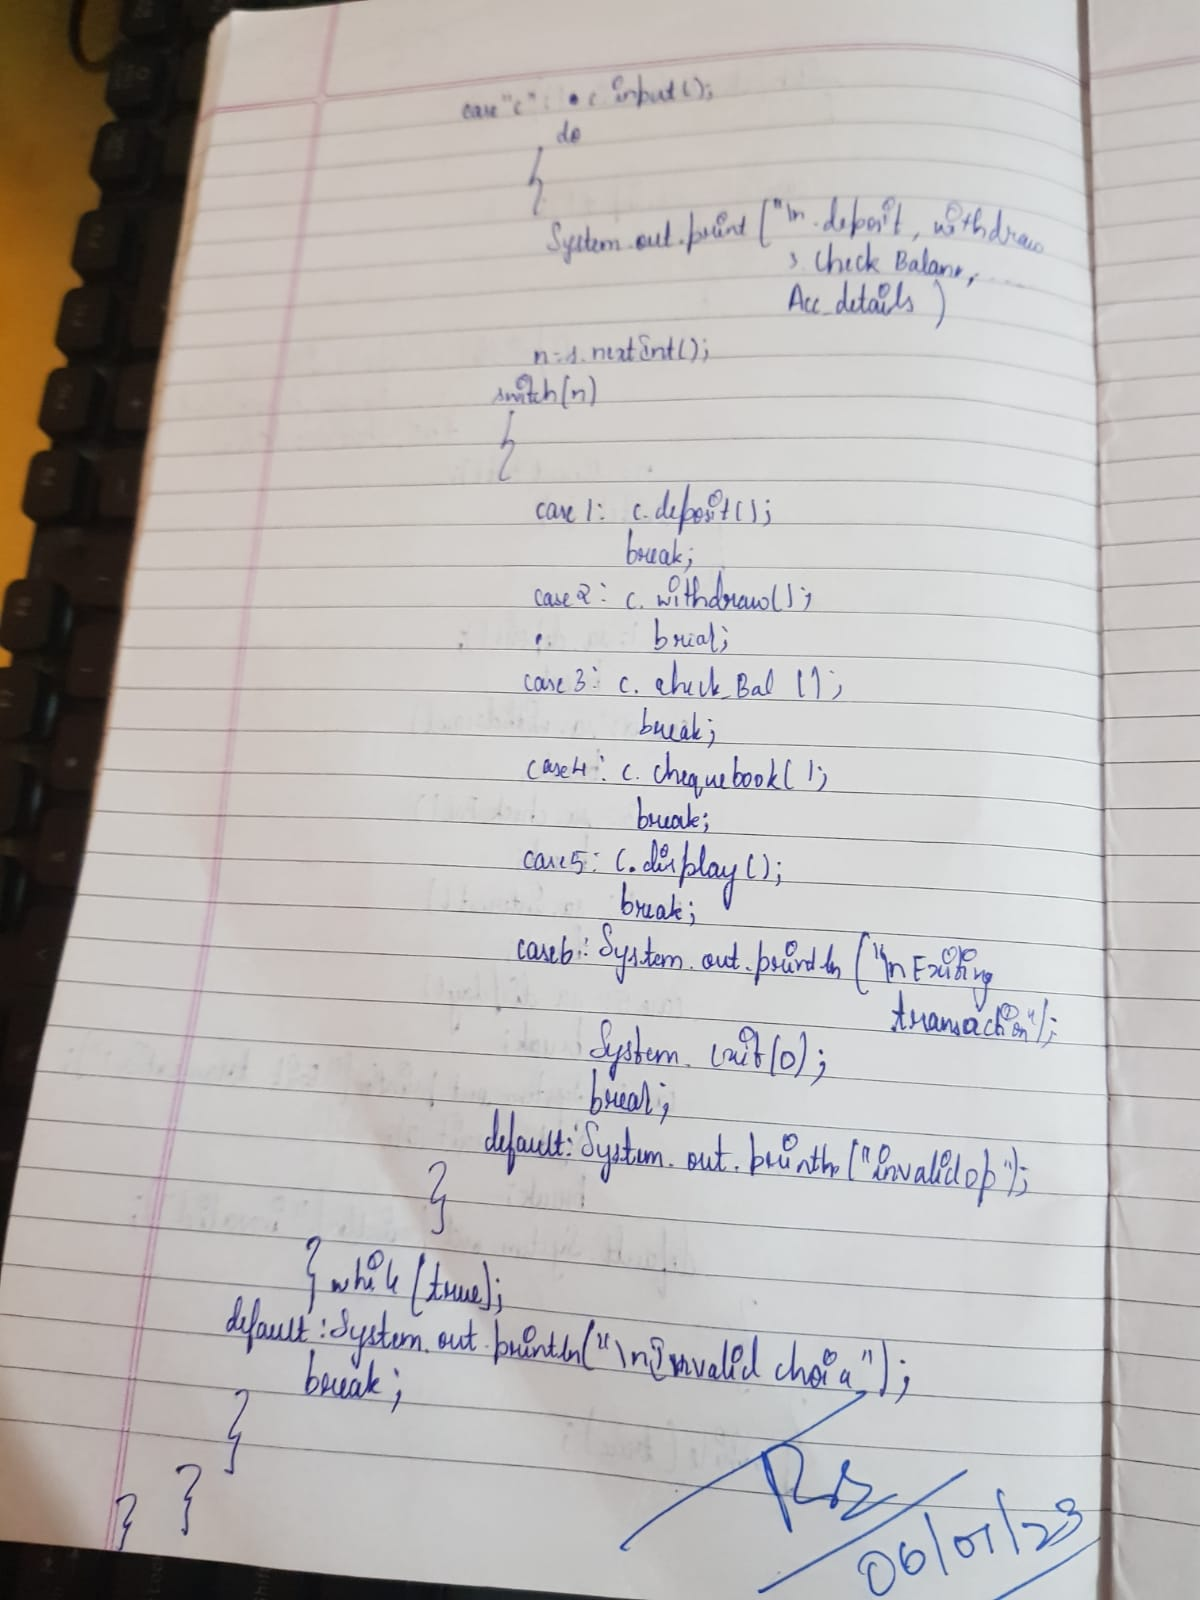 case "c": c.input();
do
{
System.out.print("\n.deposit, withdraw
, check Balance,
Acc_details)
n=s.nextInt();
switch(n)
{
case 1: c.deposit();
break;
case 2: c. withdraw();
break;
case 3: c. check_Bal ();
break;
case 4: c. chequebook();
break;
case 5: c.display();
break;
case 6: System.out.println("\n Exiting
transaction");
System. exit(0);
break;
default: System. out. println("invalid op");
}
} while (true);
default: System.out.println("\nInvalid choice");
break;
}
}
}
06/07/23